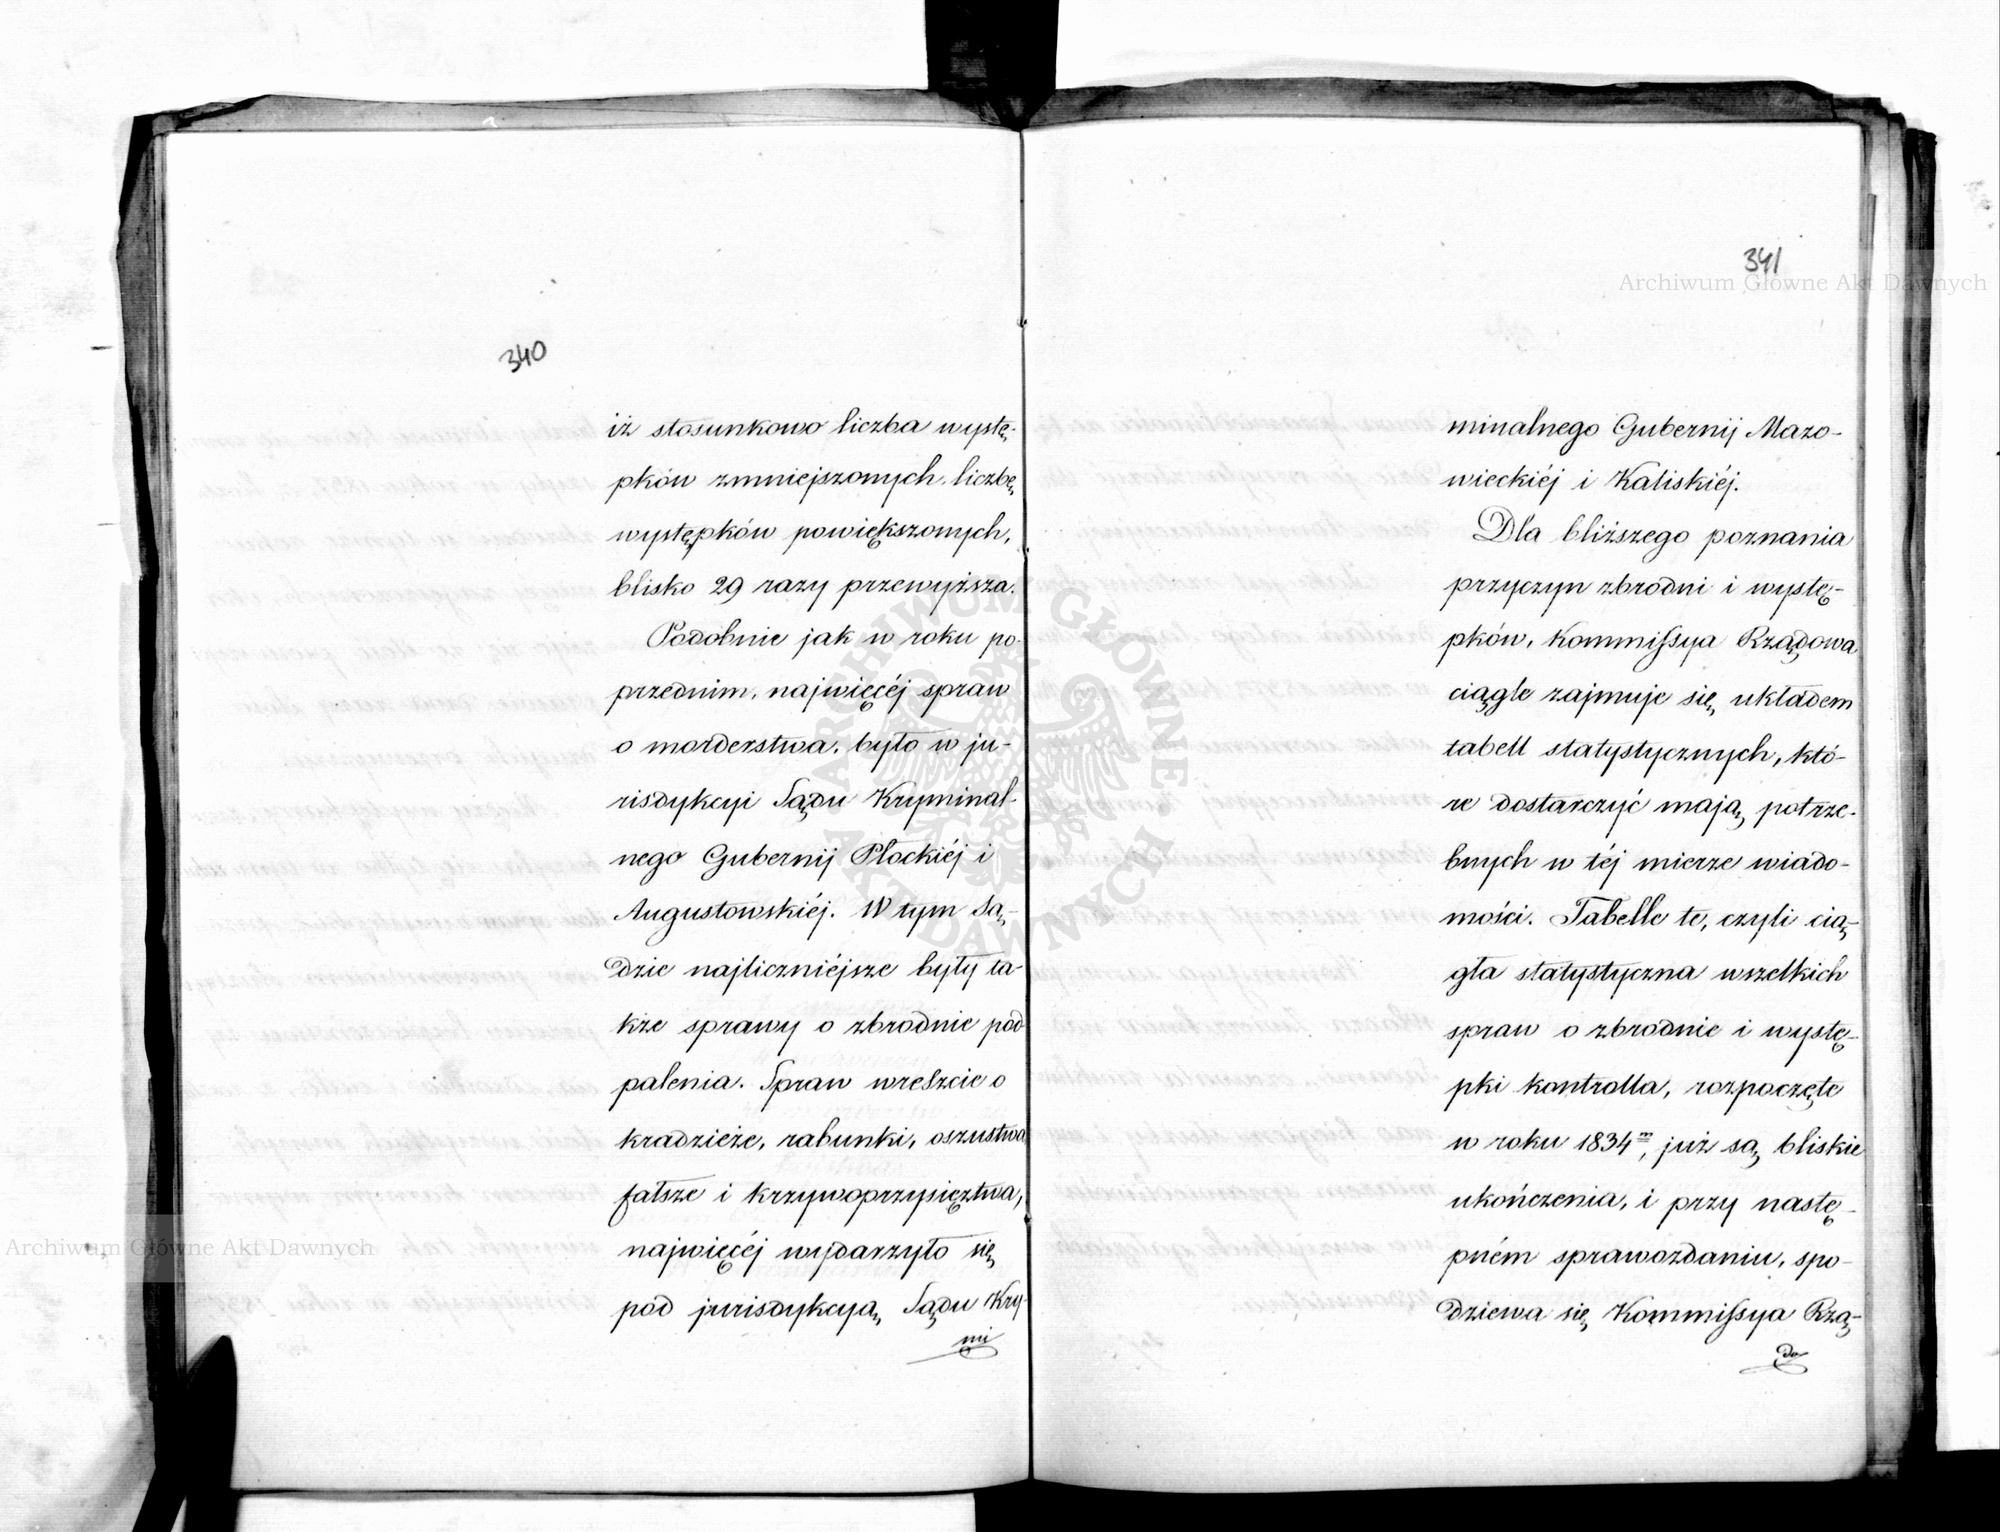 340
iż stosunkowo liczba wystę-
pków zmniejszonych, liczbę
występków powiększonych,
blisko 29 razy przewyższa.
Podobnie jak w roku po-
przednim, najwięcéj spraw
o morderstwa, było w ju-
risdykcyi Sądu Kryminal-
nego Gubernij Płockiéj i
Augustowskiéj. W tym Są-
dzie najliczniéjsze były ta-
kże sprawy o zbrodnie pod
palenia. Spraw wreszcie o
kradzieże, rabunki, oszustwa
fałsze i krzywoprzysięztwa,
najwięcéj wydarzyło się
pod jurisdykcyą Sądu Kry-
mi
341
minalnego Gubernij Mazo-
wieckiéj i Kaliskiéj.
Dla bliższego poznania
przyczyn zbrodni i wystę-
pków, Kommissya Rządowa
ciągle zajmuje się układem
tabell statystycznych, któ-
re dostarczyć mają potrze-
bnych w téj mierze wiado-
mości. Tabelle te, czyli cią-
gła statystyczna wszelkich
spraw o zbrodnie i wystę-
pki kontrolla, rozpoczęte
w roku 1834m, już są bliskie
ukończenia, i przy nastę-
pném sprawozdaniu, spo-
dziewa się Kommissya Rzą-
do
Archiwum Główne Akt Dawnych
Archiwum Główne Akt Dawnych
ARCHIWUM GŁÓWNE AKT DAWNYCH